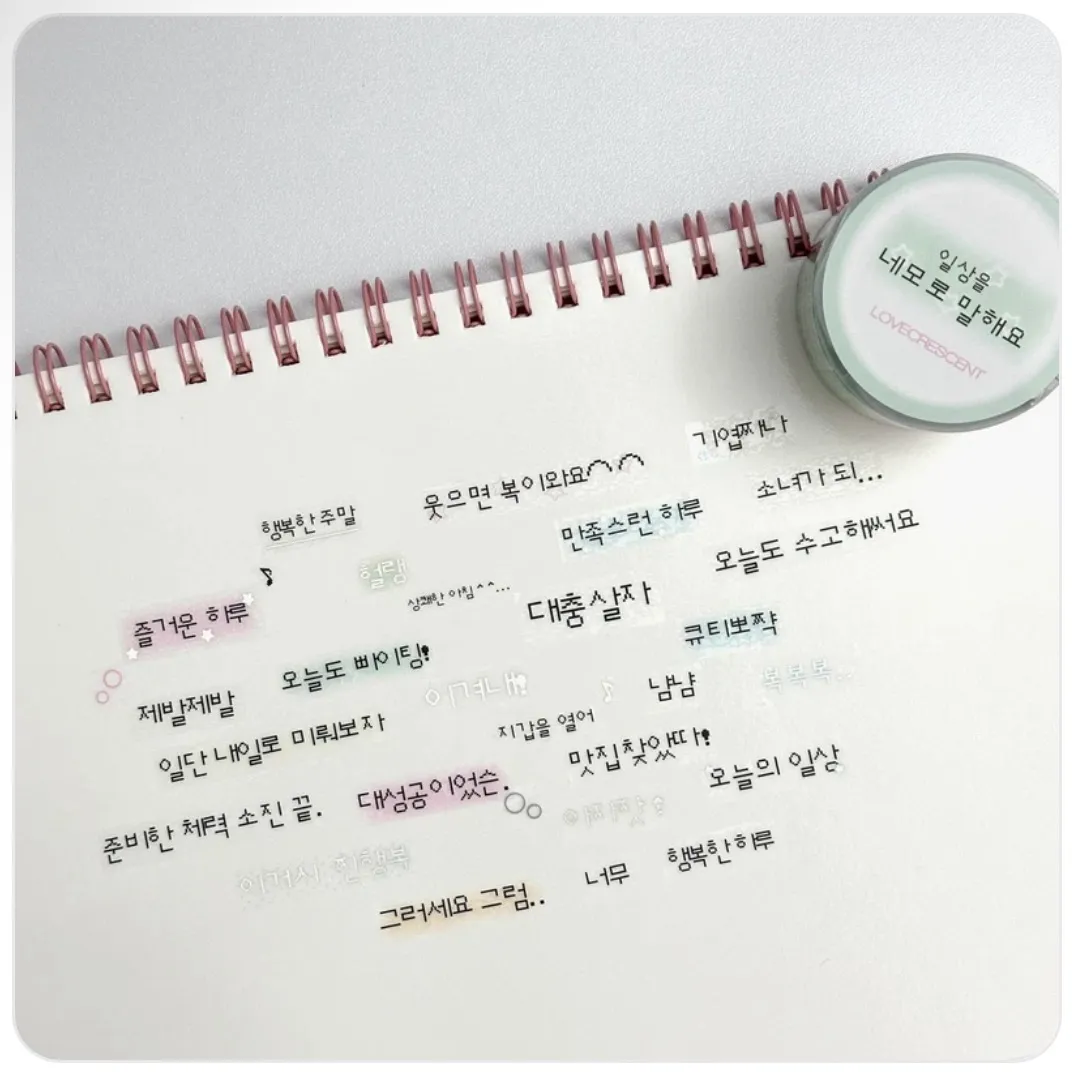 일상을
네모로 말해요
LOVECRESCENT
웃으면 복이와요^^
행복한 주말
만족스런 하루
오늘도 수고해쏘요
즐거운 하루
대충 살자
큐티뽀짝
오늘도 빠이팅!
제발제발
냠냠
복복복..
지갑을 열어
일단 내일로 미뤄보자
맛집찾았따!
오늘의 일상
대성공이엇슨.
준비한 체력 소진 끝.
행복한하루
나무
그러세요 그럼..